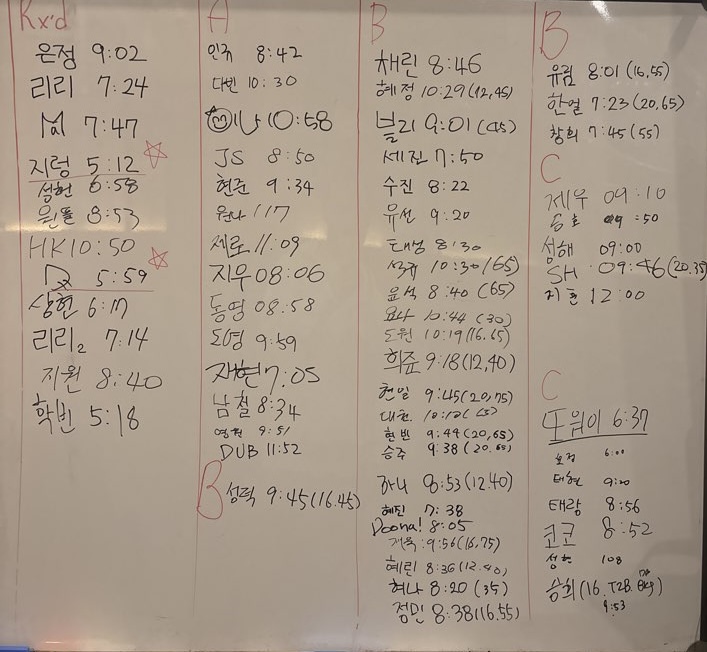 Rx'd
은정 9:02
리리 7:24
7:47
지렁 5:12
성헌 6:58
원뜰 8:53
HK 10:50
5:59
상현 6:17
리리2 7:14
지원 8:40
학빈 5:18
A
민국 8:42
다빈 10:30
10:58
JS 8:50
현준 9:34
117
제로 11:09
지우 08:06
동영 08:58
도영 9:59
재현 7:05
남철 8:34
영현 9:51
DUB 11:52
B
성택 9:45 (16.45)
B
채린 8:46
혜정 10:29 (12,45)
벌리 9:01 (45)
세진 7:50
수진 8:22
유선 9:20
태성 8:30
10:30 (65)
윤석 8:40 (65)
요나 10:44 (30)
도원 10:19 (16.65)
희준 9:18 (12,40)
현일 9:45 (20,75)
대현
현빈 9:44 (20,65)
승주 9:38 (20.65)
하니 8:53 (12.40)
혜진 7:38
Doona! 8:05
9:56 (16,75)
예린 8:36 (12.40)
혀나 8:20 (35)
정민 8:38 (16.55)
B
유림 8:01 (16,55)
한얼 7:23 (20,65)
창희 7:45 (55)
C
제우 09:10
:50
성해 09:00
SH 09:46 (20.35)
지훈 12:00
C
또워이 6:37
6:00
태현 9:20
태랑 8:56
코코 8:52
성현 108
승희 (16.T2B.
9:53